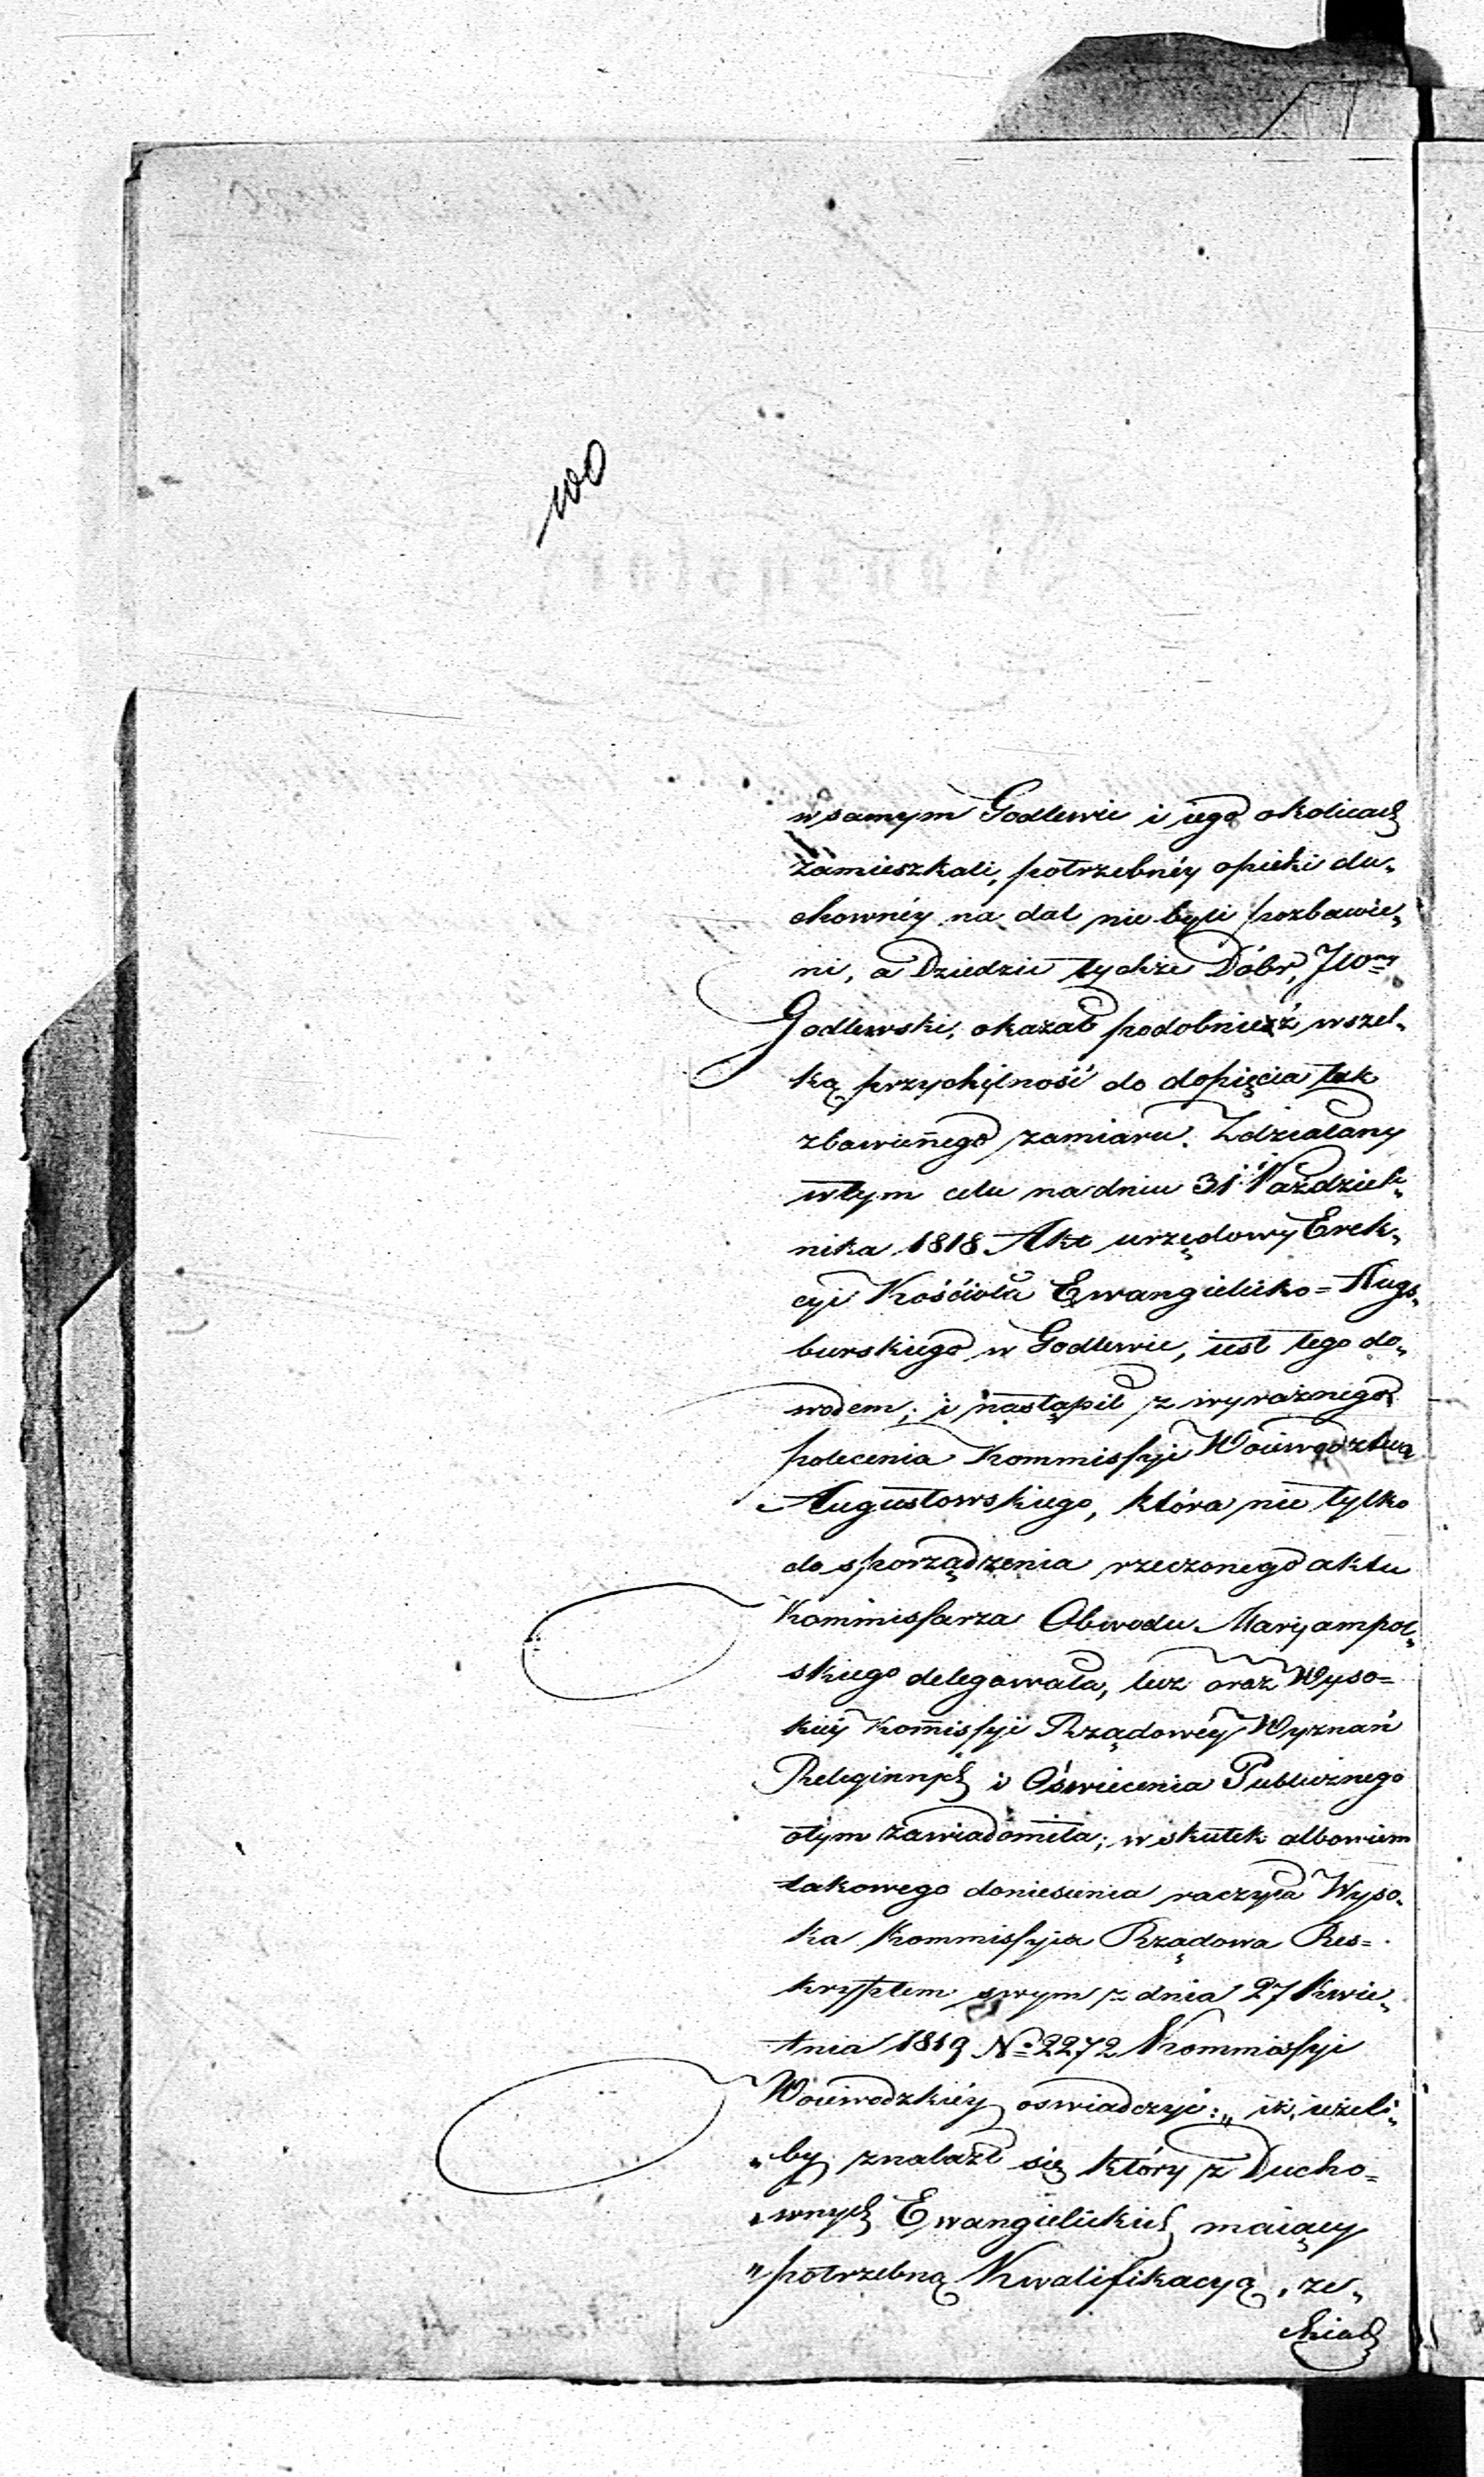 100
w samym Godlewie i iego okolicach
zamieszkali, potrzebnéy opieki du„
chownéy na dal nie byli pozbawie„
ni, a Dziedzic tychże Dóbr, JW
Godlewski, okazał podobnież wszel„
ką przychylność do dopięcia tak
zbawiennego zamiaru. Zdziałany
w tym celu na dniu 31 Paździer„
nika 1818 Akt urzędowy Erek„
cyi Kościoła Ewangielicko=Augs„
burskiego w Godlewie, iest tego do„
wodem; i nastąpił z wyraźnego
polecenia Kommissyi Woiewództwa
Augustowskiego, która nie tylko
do sporządzenia rzeczonego aktu
Kommissarza Obwodu Maryampol„
skiego delegowała, lecz oraz Wyso=
kiéy Kom̄issyi Rządowéy Wyznań
Religinych i Oświecenia Publicznego
o tym zawiadomiła; w skutek albowiem
takowego doniesienia raczyła Wyso„
ka Kommissyia Rządowa Res=
kryptem swym z dnia 27 Kwie„
tnia 1819 No 2272 Kommissyi
Woiewodzkiéy oswiadczyć: „iż, ieżeli„
„by znalazł się który z Ducho=
„wnych Ewangielickich maiący
„potrzebną Kwalifikacyą, ze„
chciał